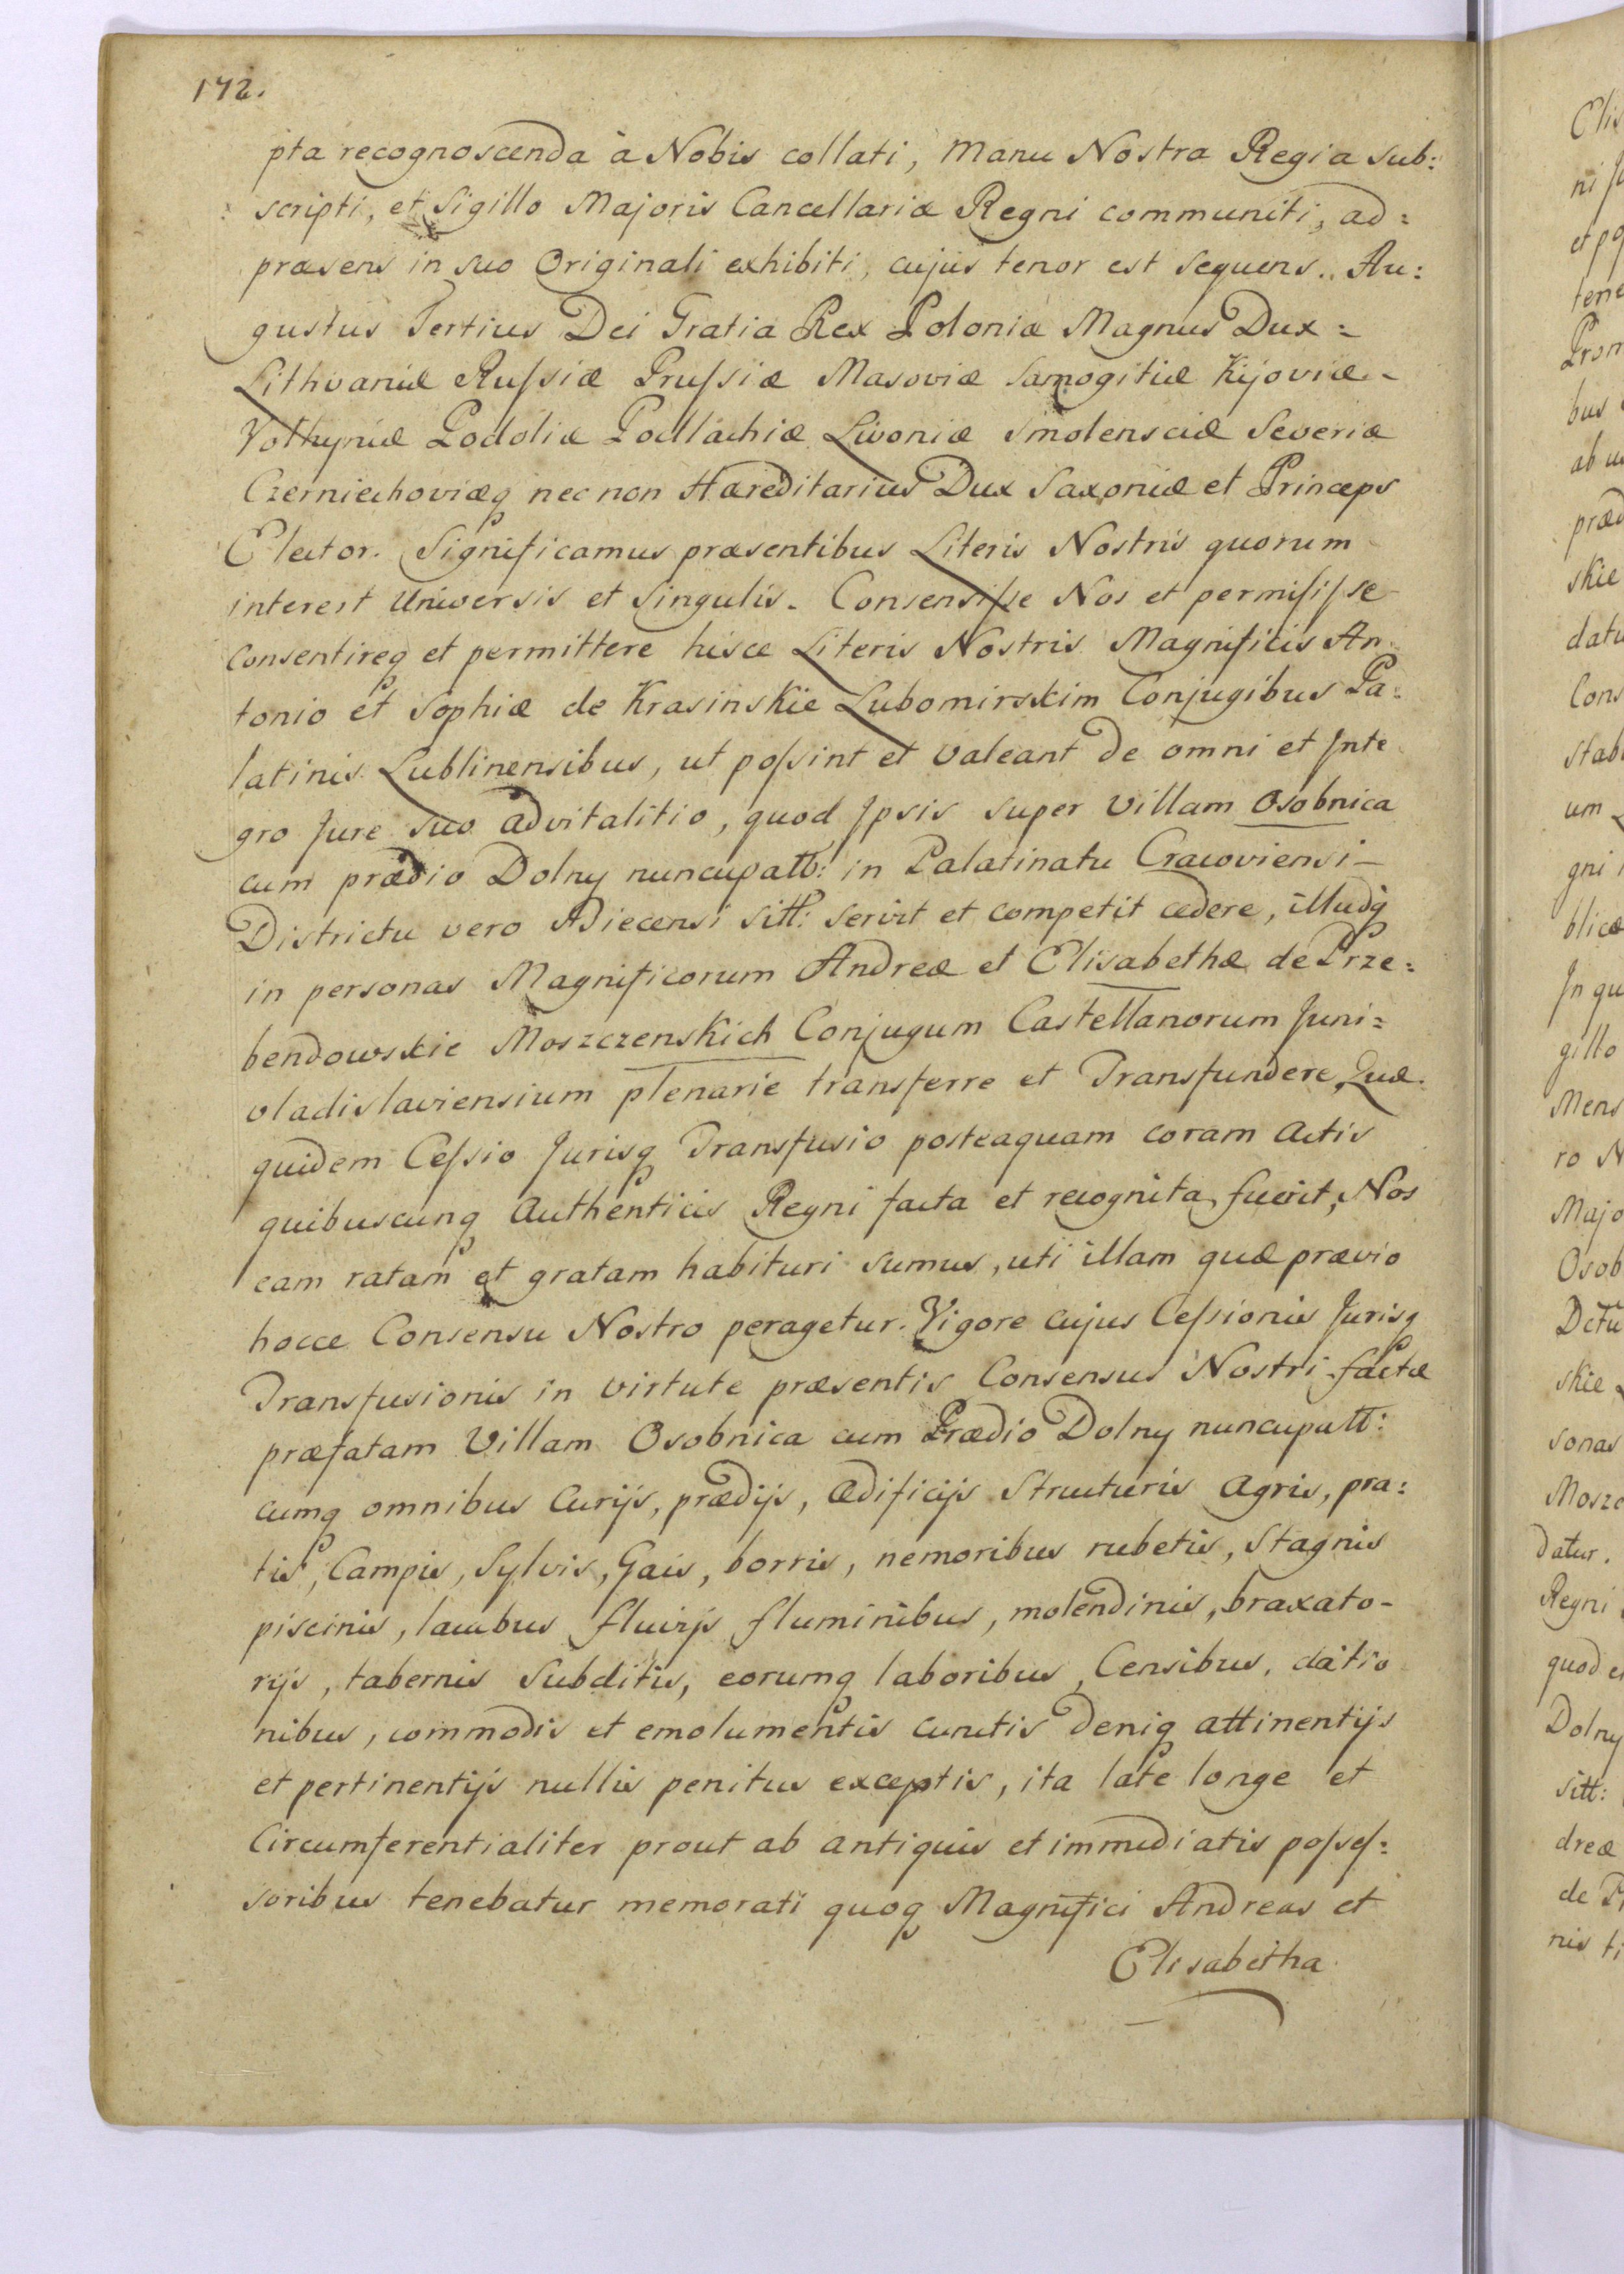 172.
pta recognoscenda à Nobis collati, Manu Nostra Regia sub:
scripti, et Sigillo Majoris Cancellariæ Regni communiti, ad=
præsens in suo Originali exhibiti, cujus tenor est Sequens.. Au:
gustus Tertius Dei Gratia Rex Poloniæ Magnus Dux=
Lithvaniæ Rufsiæ Prufsiæ Masoviæ Samogitiæ Kijoviæ-
Volhyniæ Podoliæ Podlachiæ Livoniæ Smolensciæ Severiæ
Czerniechoviæq nec non Hæreditarius Dux Saxoniæ et Princeps
Elector. Significamus præsentibus Literis Nostris quorum
interest Universis et Singulis. Consensifse Nos et permisifse
Consentireq et permittere hisce Literis Nostris Magnificis An-
tonio et Sophiæ de Krasinskie Lubomirskim Conjugibus Pa:
latinis Lublinensibus, ut pofsint et valeant de omni et Inte
gro Jure suo advitalitio, quod Ipsis super Villam Osobnica
cum prædio Dolny nuncupatt: in Palatinatu Cracoviensi-
Districtu vero Biecensi sitt: servit et competit cedere, illudq
in personas Magnificorum Andreæ et Elisabethæ de Prze=
bendowskie Moszczenskich Conjugum Castellanorum Juni=
vladislaviensium plenarie transferre et Transfundere, Quæ
quidem Cefsio Jurisq Transfusio posteaquam coram Actis
quibuscunq Authenticis Regni facta et recognita fuerit, Nos
eam ratam et gratam habituri sumus, uti illam quæ prævio
hocce Consensu Nostro peragetur. Vigore cujus Cefsionis Jurisq
Transfusionis in virtute præsentis Consensus Nostri factæ
præfatam Villam Osobnica cum Prædio Dolny nuncupatt:
cumq omnibus Curijs, prædijs, ædificijs Structuris Agris, pra:
tis, Campis, Sylvis, Gais, borris, nemoribus rubetis, Stagnis
piscinis, lacubus fluvijs fluminibus, molendinis, braxato-
rijs, tabernis Subditis, eorumq laboribus, Censibus, datio
nibus, commodis et emolumentis cunctis deniq attinentijs
et pertinentijs nullis penitus exceptis, ita late longe et
Circumferentialiter prout ab antiquis et immediatis pofsef:
soribus tenebatur memorati quoq Magnifici Andreas et
Elisabetha